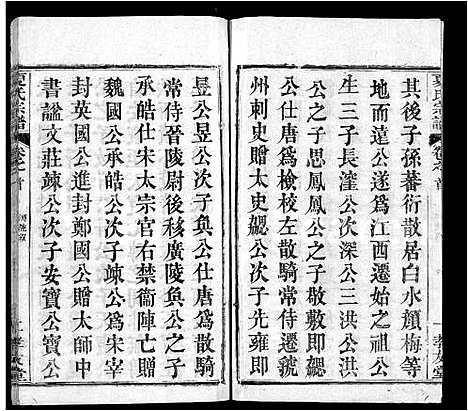 其後子孫蕃衍散居白水顏梅等
地而遠公遂爲江西遷始之祖公
生三子長溼公次深公三洪公洪
公之子思鳳公之子敬敷即勗公
仕唐爲檢校左散騎常侍遷虢
州刺史贈太史勰公次子先雍即
昱公昱公次子奐公仕唐爲散騎
常侍晉陵尉後移廣陵奐公之子
承皓仕宋太宗官右禁衞陣亡贈
魏國公承皓公次子竦公爲宋宰
相封英國公進封鄭國公贈太師中
書諡文莊竦公次子安寶公寶公
夏氏宗譜
卷之首